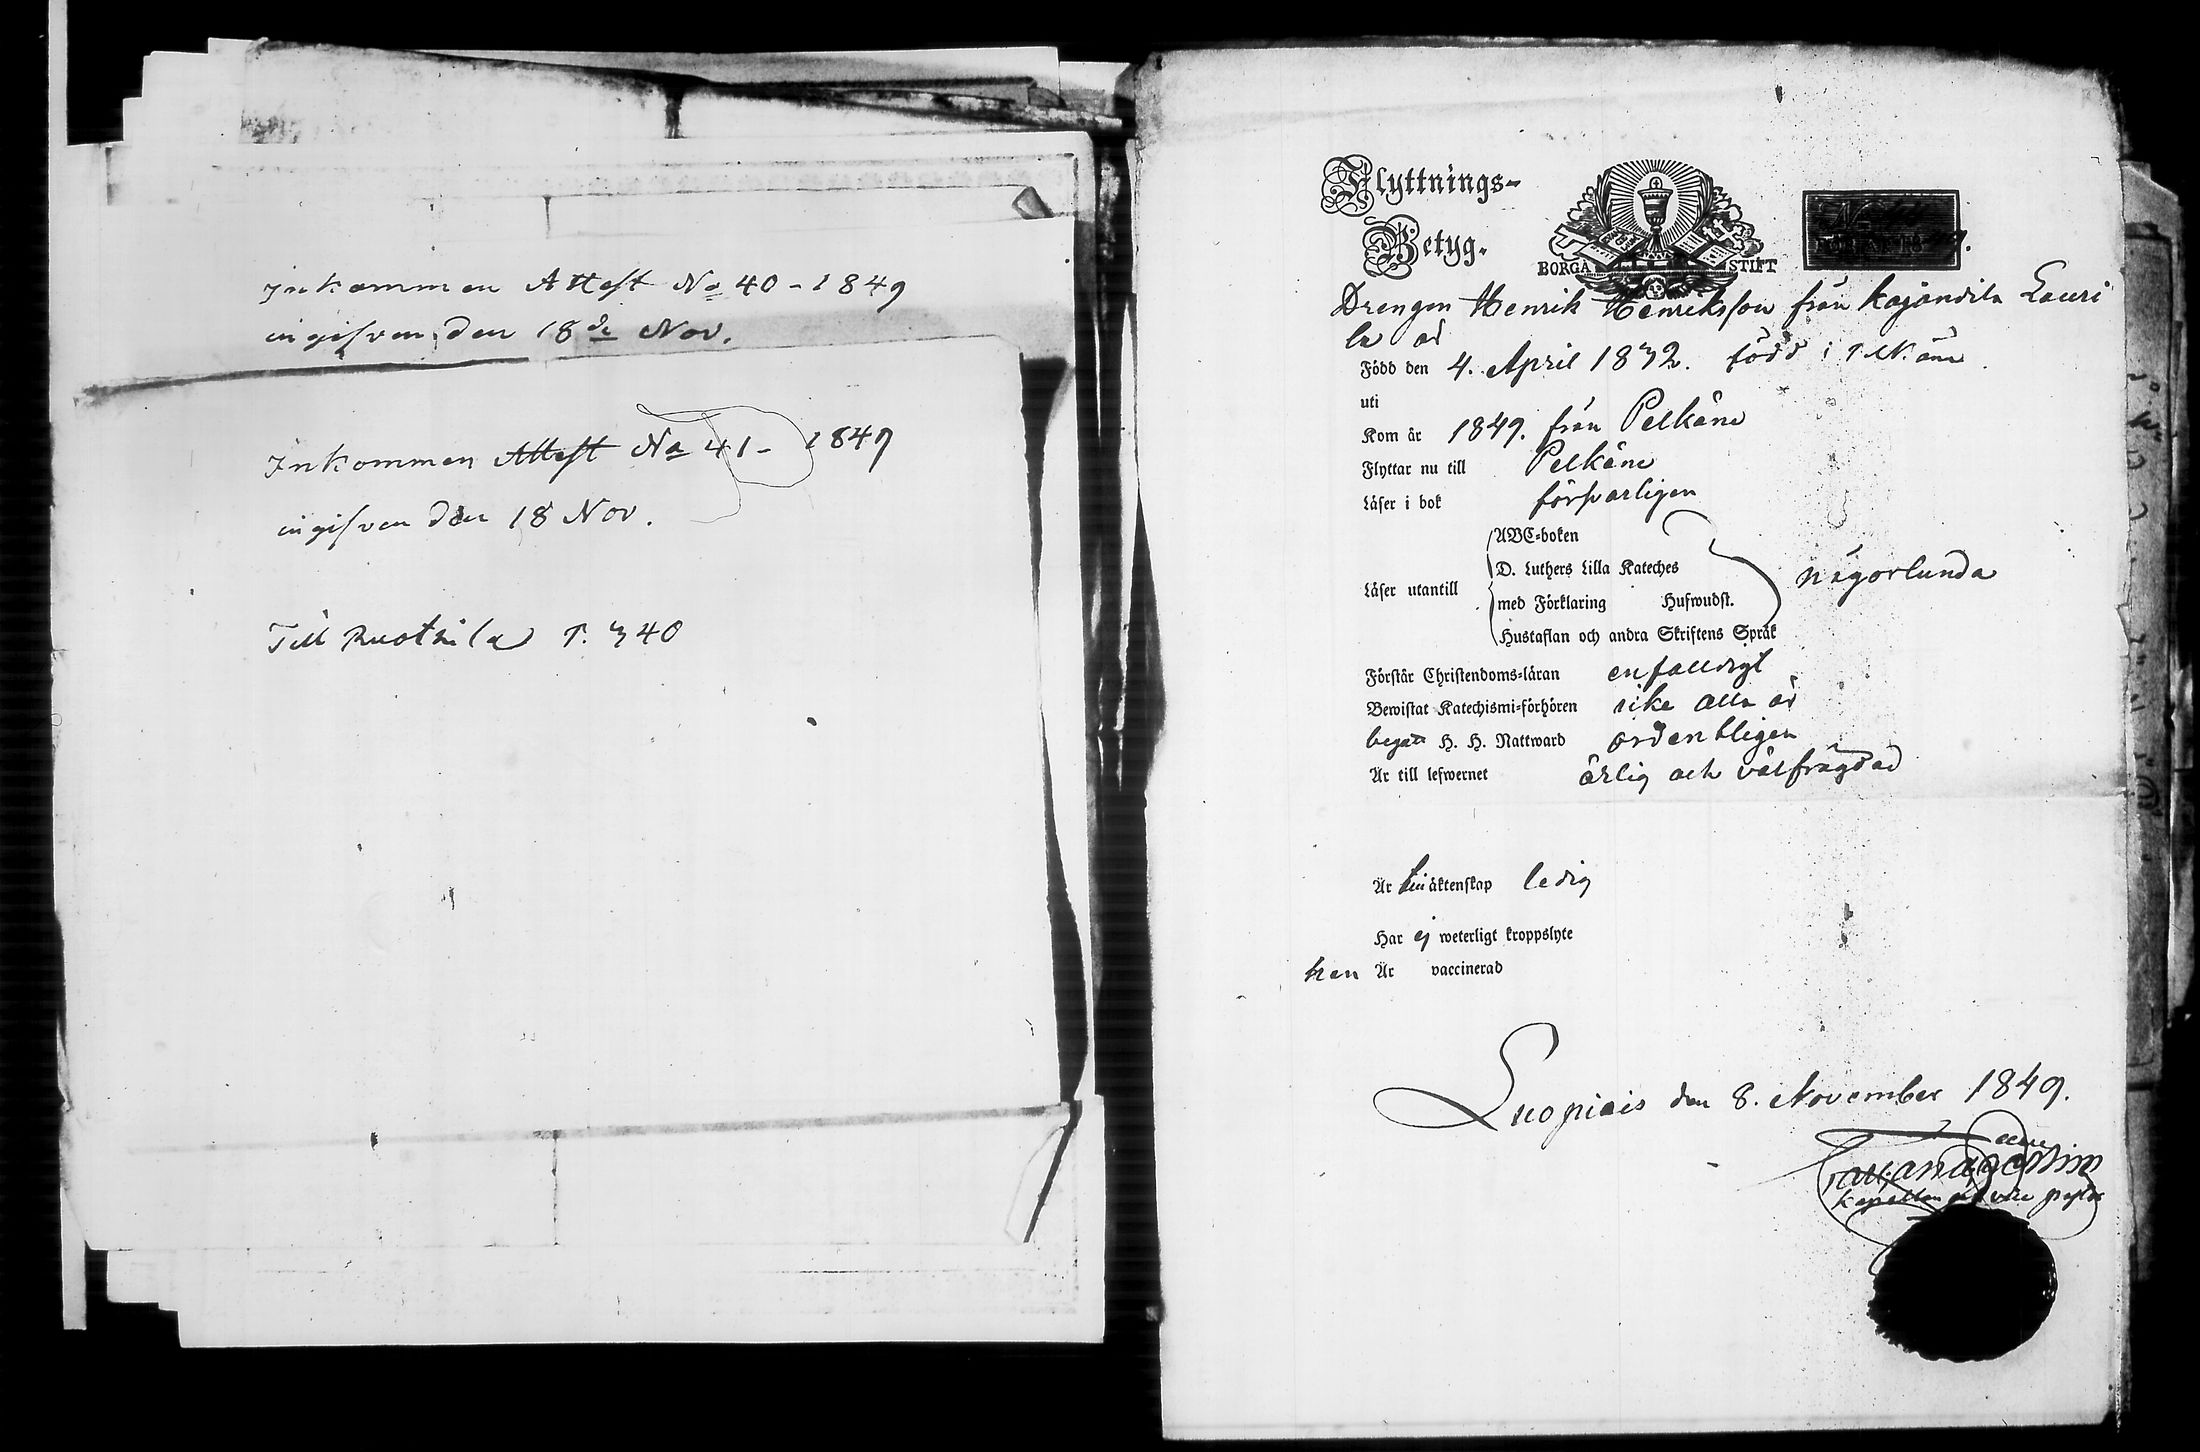 Inkommen Attest No 40 - 1849
ingifven den 18de Nov.
Inkommen Attest No 41 - 1849
ingifven den 18 Nov.
Till Ruotsila P. 340
Flyttnings-
Betyg.
BORGÅ STIFT
Drengen Henrik Henriksson från Kajandila Lauri
la
Född den 4. April 1832. född i
uti
Kom år 1849. från Pelkäne
Flyttar nu till Pelkäne
Läser i bok försvarligen
ABC-boken
D. Luthers Lilla Kateches
Läser utantill med Förklaring Hufwudst. någorlunda
Hustaflan och andra Skriftens Språk
Förstår Christendoms-läran enfaldigt
Bewistat Katechismi-förhören icke alla år
begått H. H. Nattward ordentligen
Är till lefwernet ärlig och välfrägdad
Är till äktenskap ledig
Har ej weterligt kroppslyte
han Är vaccinerad
Luopiois den 8. November 1849.
Kapellan och vice pastor